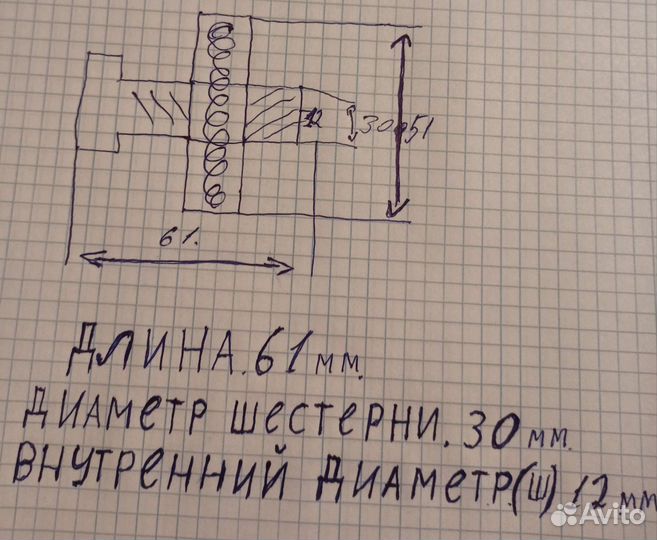 12
30
51
61.
ДЛИНА. 61 мм.
ДИАМЕТР ШЕСТЕРНИ. 30 мм.
ВНУТРЕННИЙ ДИАМЕТР(Ш) 12 мм
Avito